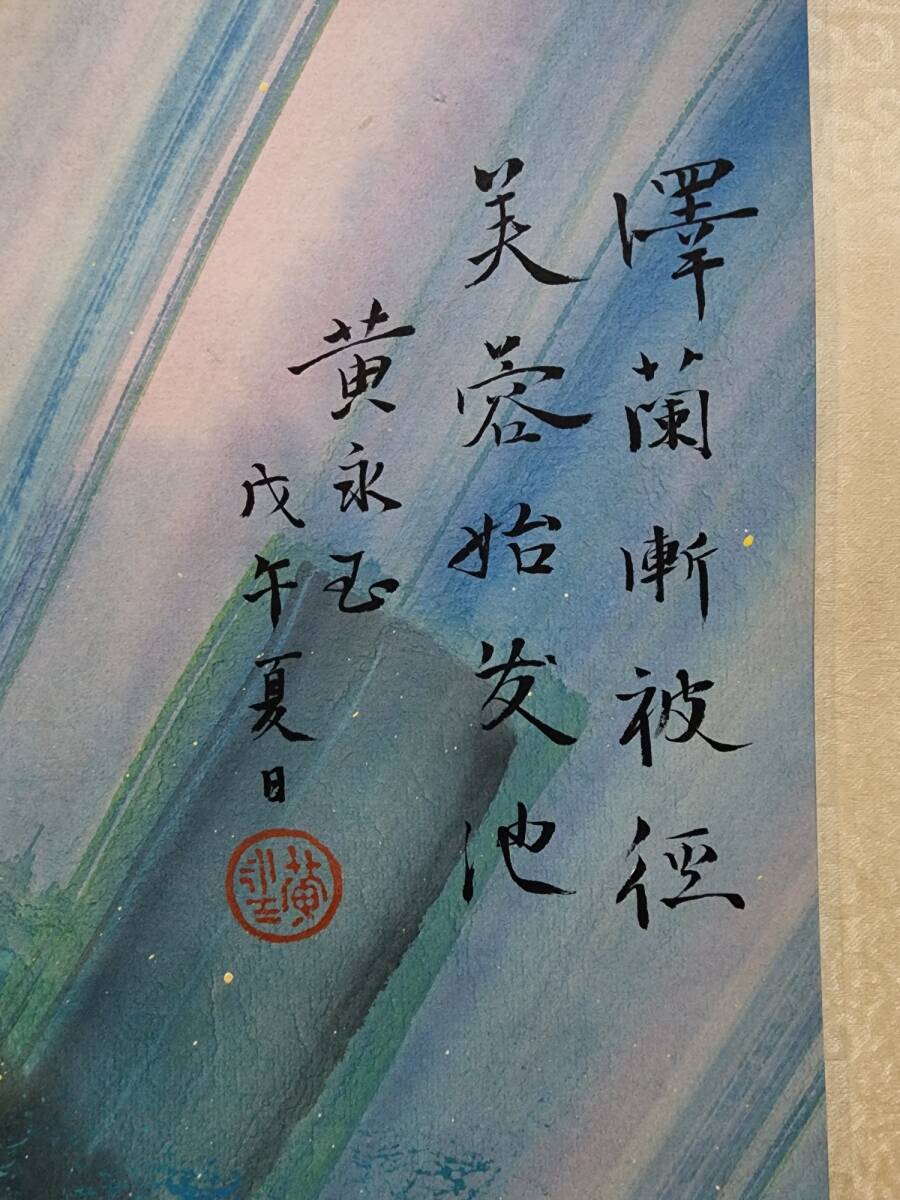 澤蘭漸被徑
芙蓉始发池
黄永玉
戊午夏日
黄永玉